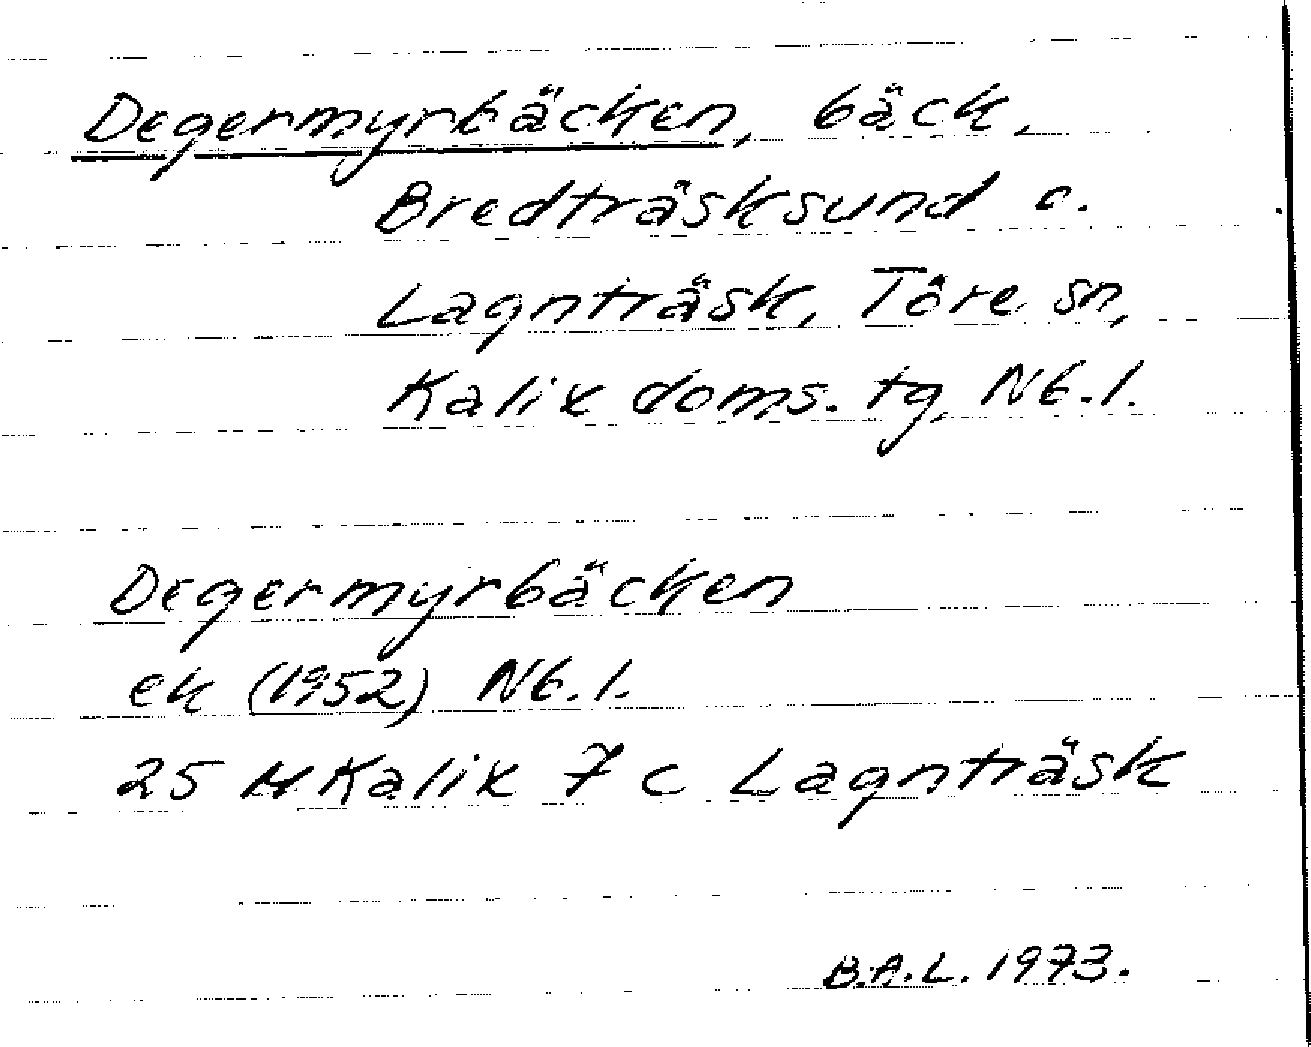 Degermyrbäcken, bäck,
Bredträsksund o.
Lagnträsk, Töre sn,
Kalix doms. tg, Nb. l.
Degermyrbäcken
ek (1952) Nb. l.
25 M Kalix 7 c Lagnträsk
B.A.L. 1973.